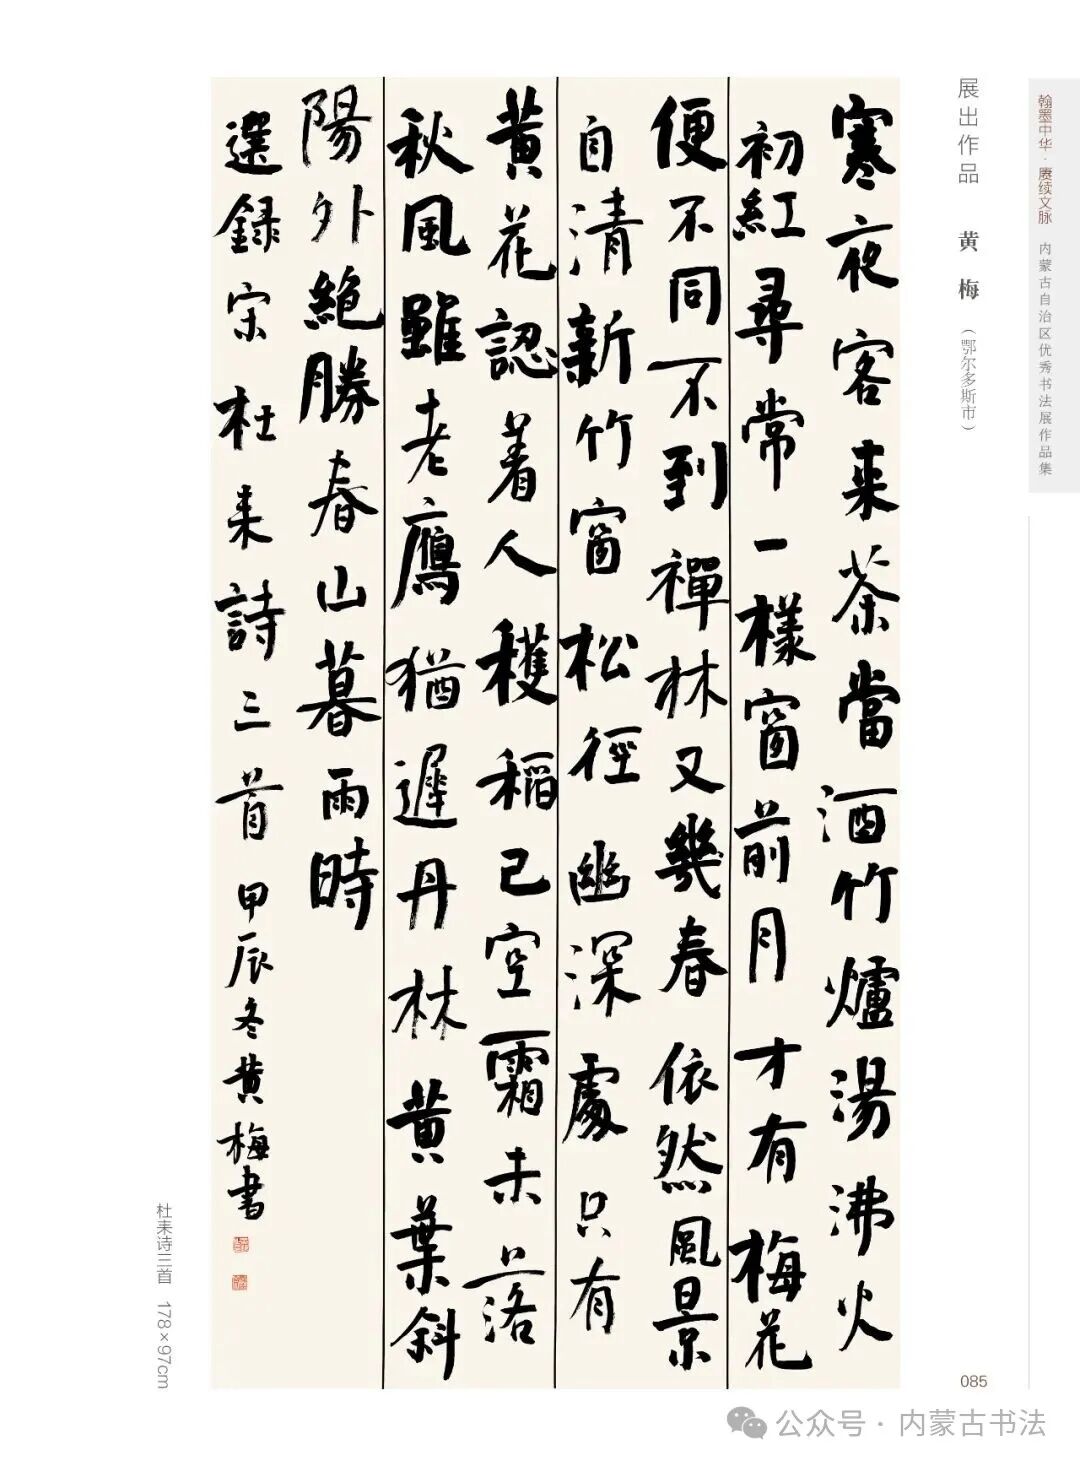 翰墨中华·赓续文脉 内蒙古自治区优秀书法展作品集
展出作品 黄梅（鄂尔多斯市）
寒夜客来茶當酒竹爐湯沸火
初紅尋常一樣窗前月才有梅花
便不同不到禪林又幾春依然風景
自清新竹窗松徑幽深處只有
黄花認着人穫稻已空霜未落
秋風雖老鴈猶遲丹林黄葉斜
陽外絶勝春山暮雨時
選録宋杜耒詩三首甲辰冬黄梅书
杜耒诗三首 178×97cm
085
公众号·内蒙古书法